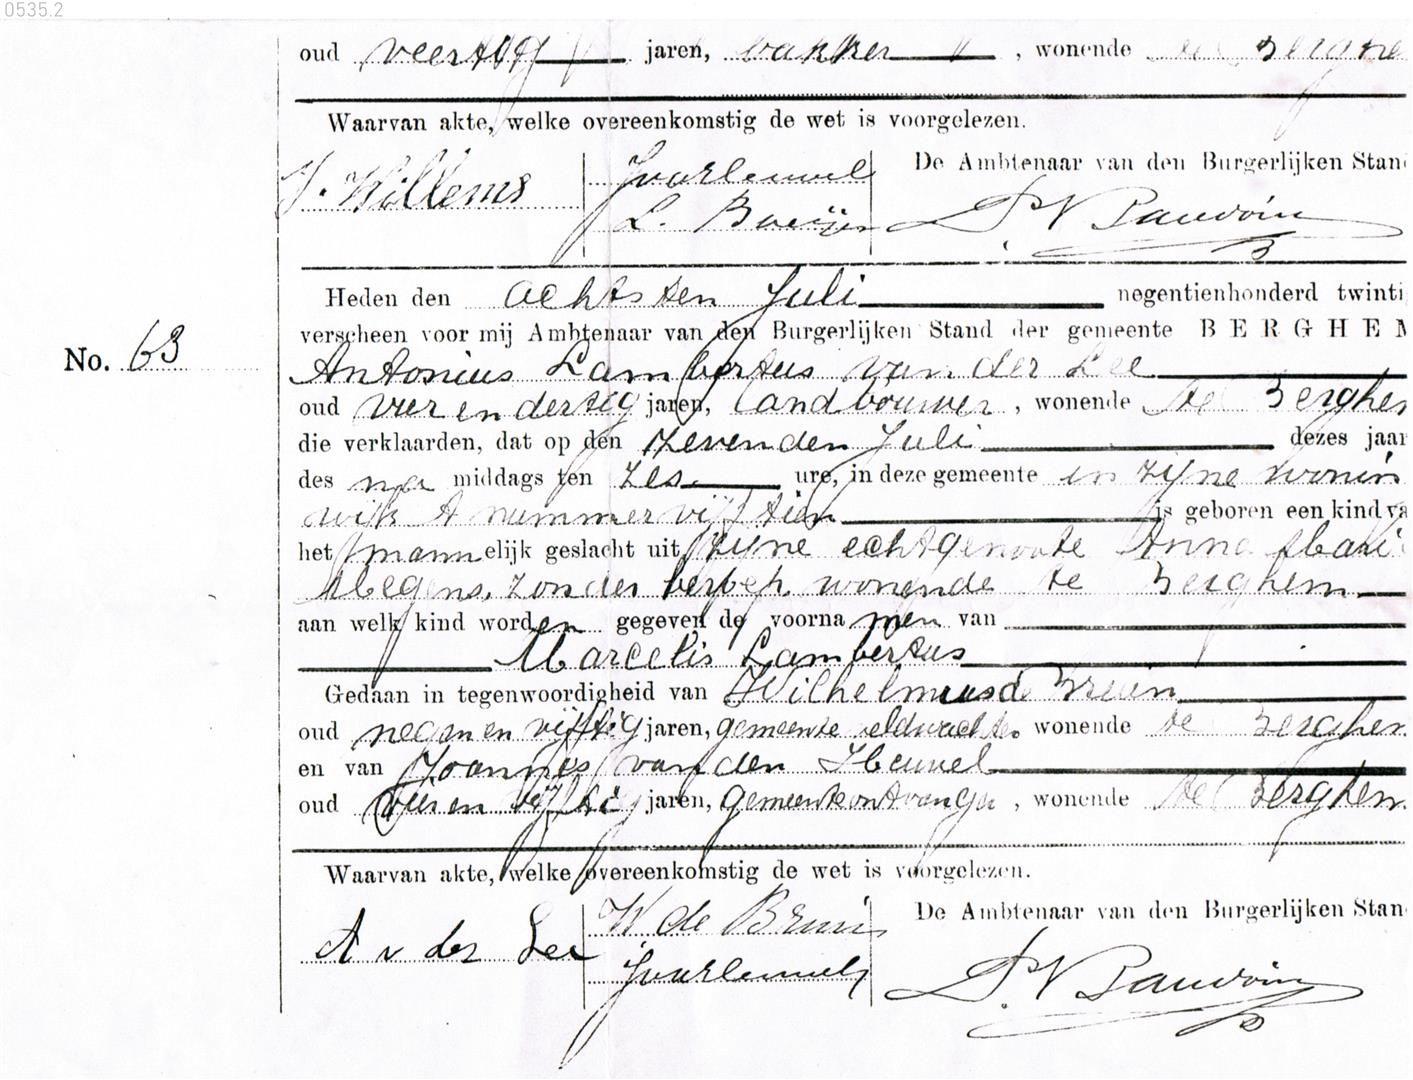 0535.2
oud veertig jaren, bakker, wonende te Berghe
Waarvan akte, welke overeenkomstig de wet is voorgelezen.
De Ambtenaar van den Burgerlijken Stan
J. Willems
Jvanheuvel
L. Boeijen
Heden den achtsten Juli negentienhonderd twinti
verscheen voor mij Ambtenaar van den Burgerlijken Stand der gemeente BERGHEM
No. 63
Antonius Lambertus van der Lee
oud vier en dertig jaren, landbouwer, wonende te Berghem
die verklaarden, dat op den zevenden Juli dezes jaar
des na middags ten zes ure, in deze gemeente in zijne wonin
wijk A nummer vijftien is geboren een kind va
het mannelijk geslacht uit zijne echtgenoote Anna Mari
Megens, zonder beroep, wonende te Berghem
aan welk kind worden gegeven de voornamen van
Marcelis Lambertus
Gedaan in tegenwoordigheid van Wilhelmus de Bruin
oud negen en vijftig jaren, gemeente veldwachter wonende te Berghem
en van Joannes van den Heuvel
oud vier en vijftig jaren, gemeenteontvanger, wonende te Berghem
Waarvan akte, welke overeenkomstig de wet is voorgelezen.
De Ambtenaar van den Burgerlijken Stan
A v der Lee
W de Bruin